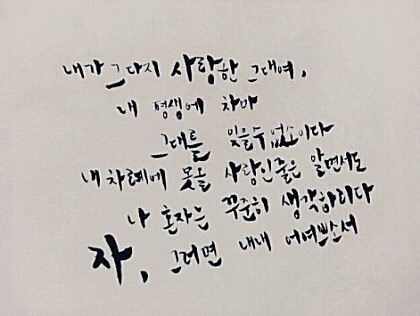 내가 그다지 사랑한 그대여,
내 평생에 차마
그대를 잊을수 없소이다
내 차례에 못올 사랑인줄은 알면서도
나 혼자는 꾸준히 생각하리다
자, 그러면 내내 어여쁘소서